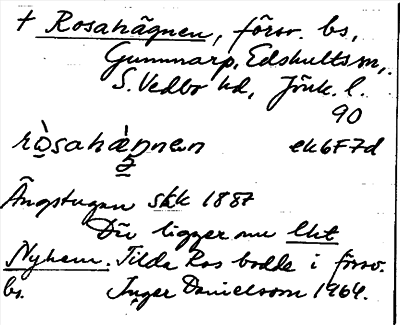 † Rosahägnen, försv. bs,
Gummarp, Edshults sn,
S. Vedbo hd, Jönk. l.
90
ròsahàŋnen ek6F7d
Ängstugan skk 1887
Där ligger nu lht
Nyhem. Tilda Ros bodde i försv.
bs. Inger Danielsson 1964.